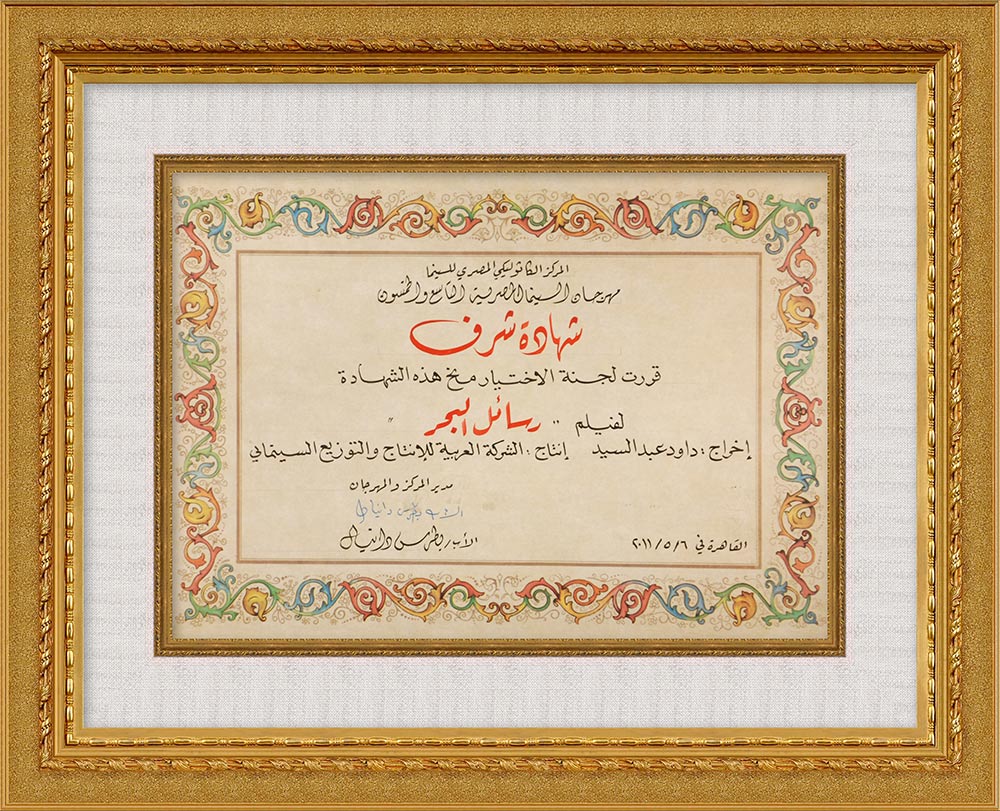 المركز الكاثوليكي المصري للسينما
مهرجان السينما المصرية التاسع والخمسون
شهادة شرف
قررت لجنة الاختيار منح هذه الشهادة
لفيلم " رسائل البحر "
إخراج : داود عبد السيد إنتاج : الشركة العربية للإنتاج والتوزيع السينمائي
مدير المركز والمهرجان
الأب بطرس دانيال
القاهرة في ٢٠١١/٥/٦ الأب/ بطرس دانيال